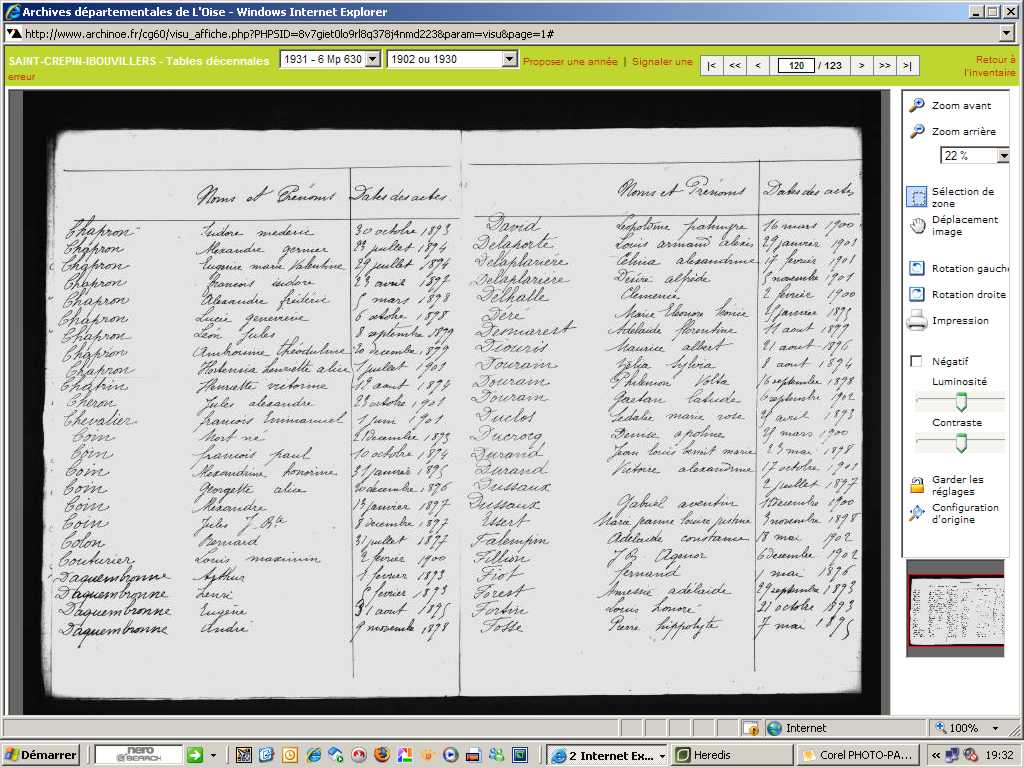 Archives départementales de L'Oise - Windows Internet Explorer
http://www.archinoe.fr/cg60/visu_affiche.php?PHPSID=8v7giet0lo9rl8q378j4nmd223&param=visu&page=1#
SAINT-CREPIN-IBOUVILLERS - Tables décennales 1931 - 6 Mp 630 1902 ou 1930 Proposer une année | Signaler une erreur |< << < 120 / 123 > >> >| Retour à l'inventaire
Noms et Prénoms Dates des actes.
Chapron Isidore mederic 30 octobre 1893
Chapron Alexandre germer 23 juillet 1894
Chapron Eugenie marie Valentine 29 juillet 1894
Chapron francois isidore 23 avril 1897
Chapron Alexandre fréderic 5 mars 1898
Chapron Lucie genevieve 6 octobre 1898
Chapron Léon Jules 8 septembre 1899
Chapron Ambroisine théoduline 20 decembre 1899
Chapron Hortensia henriette alice 1 juillet 1901
Chatrin Henriette victorine 19 aout 1894
Cheron Jules alexandre 23 octobre 1901
Chevalier francois Emmanuel 1 juin 1901
Coin Mort né 21 decembre 1893
Coin francois paul 10 octobre 1894
Coin Alexandrine honorine 31 janvier 1895
Coin Georgette alice 20 decembre 1896
Coin Alexandre 13 janvier 1897
Coin Jules J. Bte 8 decembre 1897
Colon Bernard 31 juillet 1897
Couturier Louis maximin 2 fevrier 1900
Daquembronne Arthur 1 fevrier 1893
Daquembronne Henri 6 fevrier 1893
Daquembronne Eugène 31 aout 1895
Daquembronne André 9 novembre 1898
Noms et Prénoms Dates des actes
David Leopoldine palmyre 16 mars 1900
Delaporte Louis armand alexis 29 janvier 1901
Delaplariere Celina alexandrine 17 fevrier 1901
Delaplariere Désiré alpide 5 novembre 1901
Delhalle Clemence 2 fevrier 1900
Deré Marie Eleonore 25 janvier 1895
Desmarest Adelaide florentine 11 aout 1899
Diouris Maurice albert 21 aout 1896
Dourain Zélia Sylvia 8 aout 1894
Dourain Philemon Volta 16 septembre 1898
Dourain Gaetan 6 septembre 1902
Duclos marie rose 25 avril 1893
Ducrocq Denise apoline 29 mars 1900
Durand Jean louis benoit marie 23 mai 1898
Durand Victoire alexandrine 17 octobre 1901
Dussaux 2 juillet 1897
Dussaux Gabriel aventin decembre 1900
Essert Marie jeanne louise justine 3 novembre 1898
Falempin Adelaide constance 18 mai 1902
Fillion J. B. Agenor 6 decembre 1902
Fiot fernand 1 mai 1896
Forest adelaide 29 septembre 1893
Fortin Louis honoré 21 octobre 1893
Fosse Pierre hippolyte 7 mai 1895
Zoom avant
Zoom arrière
22 %
Sélection de zone
Déplacement image
Rotation gauche
Rotation droite
Impression
Négatif
Luminosité
Contraste
Garder les réglages
Configuration d'origine
Internet 100%
Démarrer nero SEARCH 2 Internet Ex... Heredis Corel PHOTO-PA... « 19:32